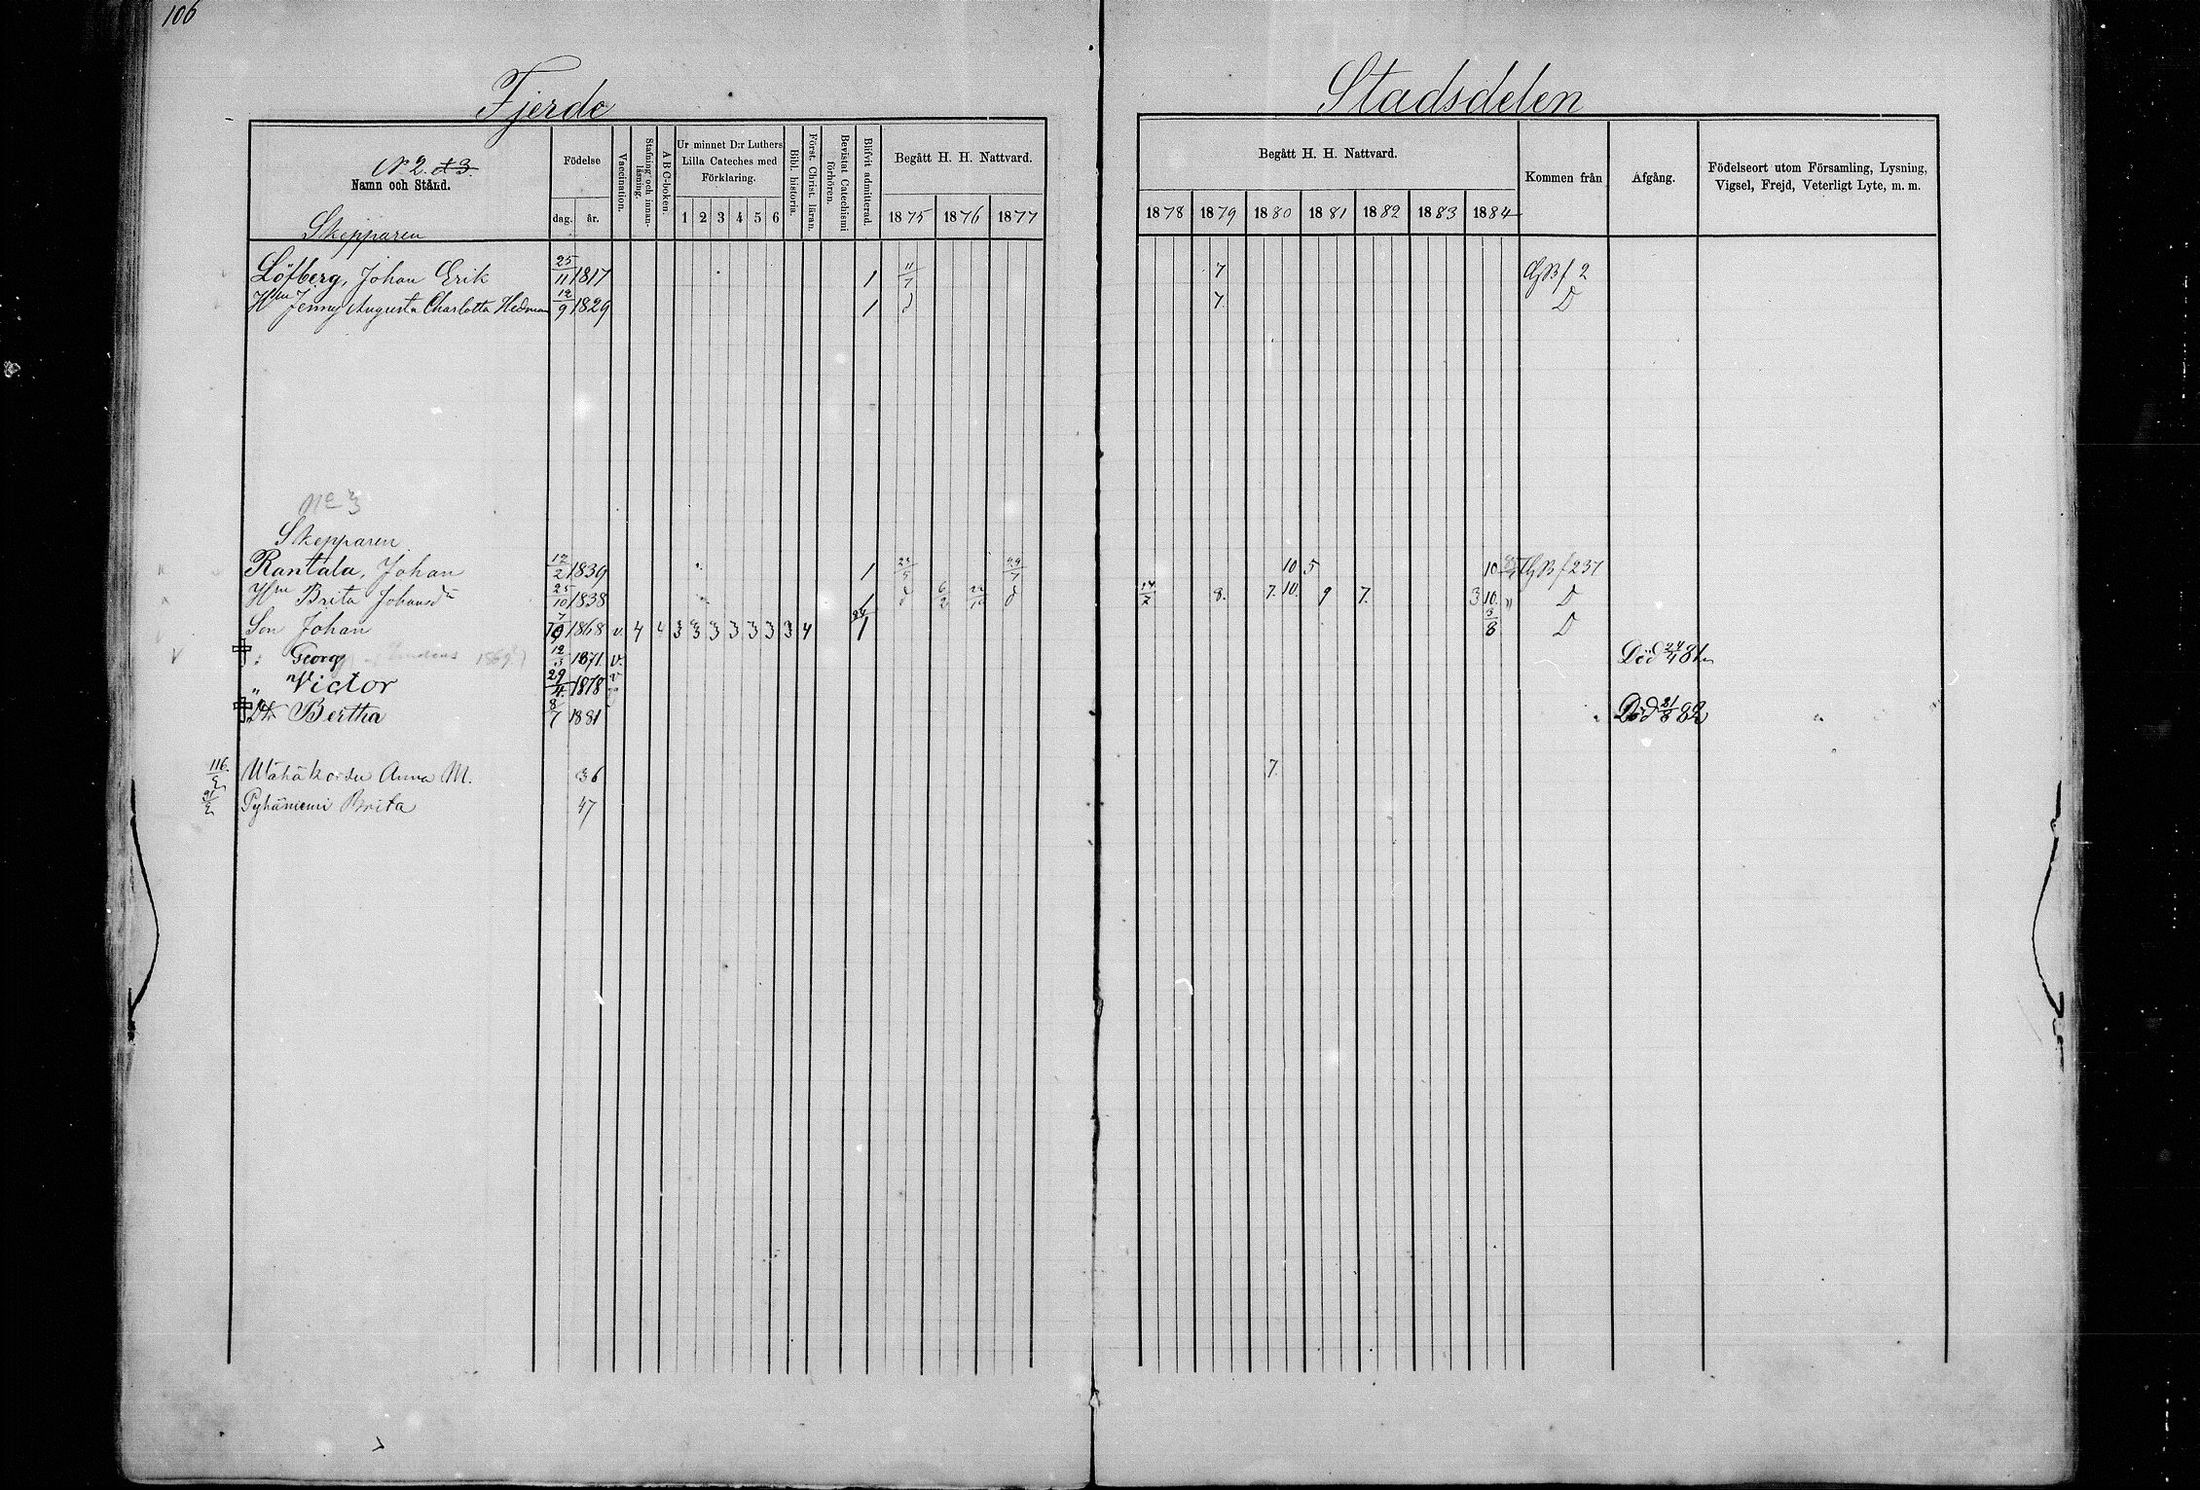 106
Fjerde Stadsdelen
N 2. et 3.
Namn och Stånd.
Födelse
dag. år.
Vaccination.
Stafning och innanläsning.
A B C-boken.
Ur minnet D:r Luthers Lilla Cateches med Förklaring.
1 2 3 4 5 6
Bibl. historia.
Först. Christ. läran.
Bevistat Catechismi förhören.
Blifvit admitterad.
Begått H. H. Nattvard.
1875 1876 1877
Begått H. H. Nattvard.
1878 1879 1880 1881 1882 1883 1884
Kommen från
Afgång.
Födelseort utom Församling, Lysning, Vigsel, Frejd, Veterligt Lyte, m. m.
Skepparen
Löfberg, Johan Erik 25/11 1817 1 11/7 7 GBf 2
Hm Jenny Augusta Charlotta Hedman 12/9 1829 1 d 7. D
No 3
Skepparen
Rantala, Johan 12/2 1839 1 10 5 10 GBf 237
Hm Brita Johansdr 25/10 1838 1 d d 8. 7. 10. 9 7. 3 10. " D
Son Johan 1868 v. 4 4 3 3 3 3 3 3 3 4 1 3/8 D
" Georg 12/3 1871. v. Död 24/4 81
" Victor 29/4. 1878 v
Dr Bertha 8/7 1881 Död 21/8 82
116 Wähäkorsu Anna M. 36 7.
91 Pyhäniemi Brita 47